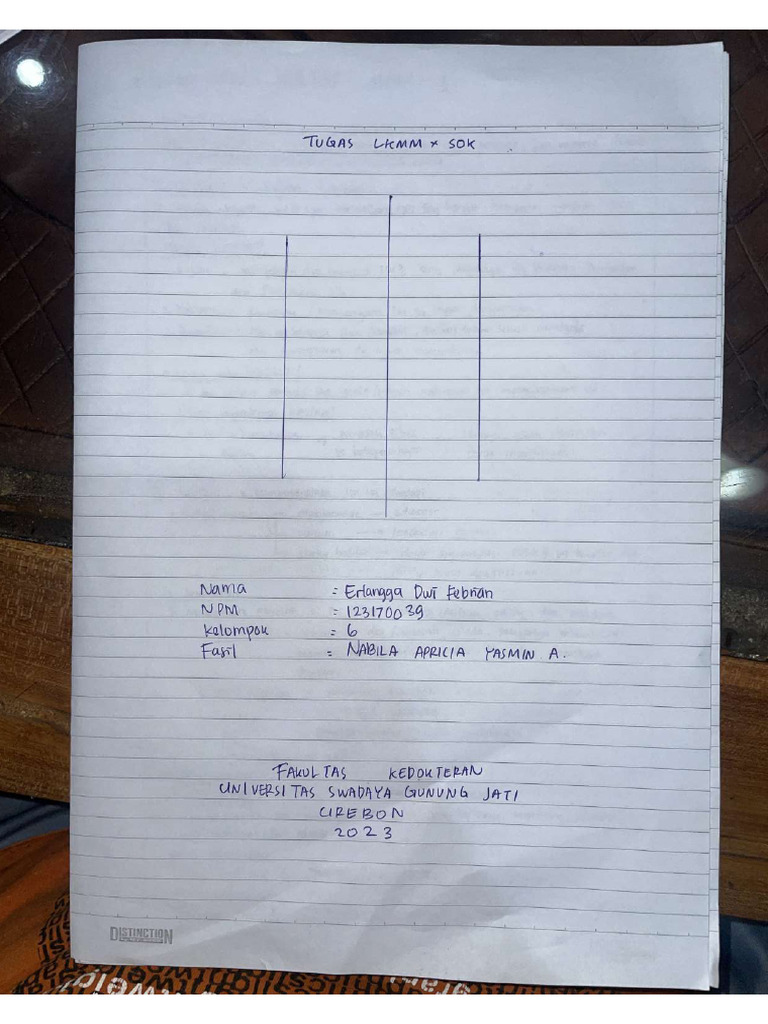 TUGAS LKMM x SOK
Nama : Erlangga Dwi Febrian
NPM : 123170039
Kelompok : 6
Fasil : NABILA APRICIA YASMIN A.
FAKULTAS KEDOKTERAN
UNIVERSITAS SWADAYA GUNUNG JATI
CIREBON
2023
DISTINCTION